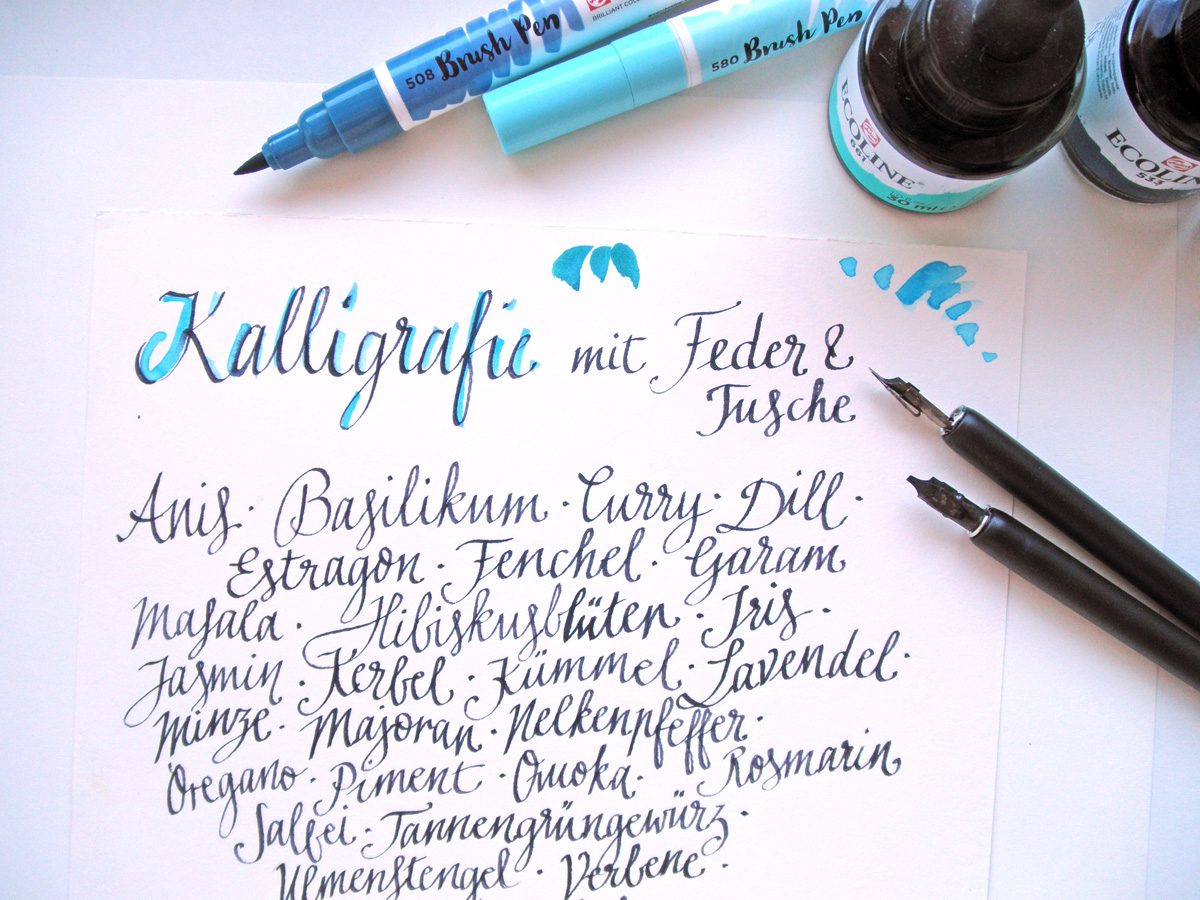 508 Brush Pen
BRILLIANT COLO
580 Brush Pen
ECOLINE
661
30 ml
ECOLIN
533
Kalligrafie mit Feder &
Tusche
Anis · Basilikum · Curry · Dill ·
Estragon · Fenchel · Garam
Masala · Hibiskusblüten · Iris ·
Jasmin · Kerbel · Kümmel · Lavendel ·
Minze · Majoran · Nelkenpfeffer ·
Oregano · Piment · Quoka · Rosmarin
Salbei · Tannengrüngewürz ·
Ulmenstengel · Verbene ·